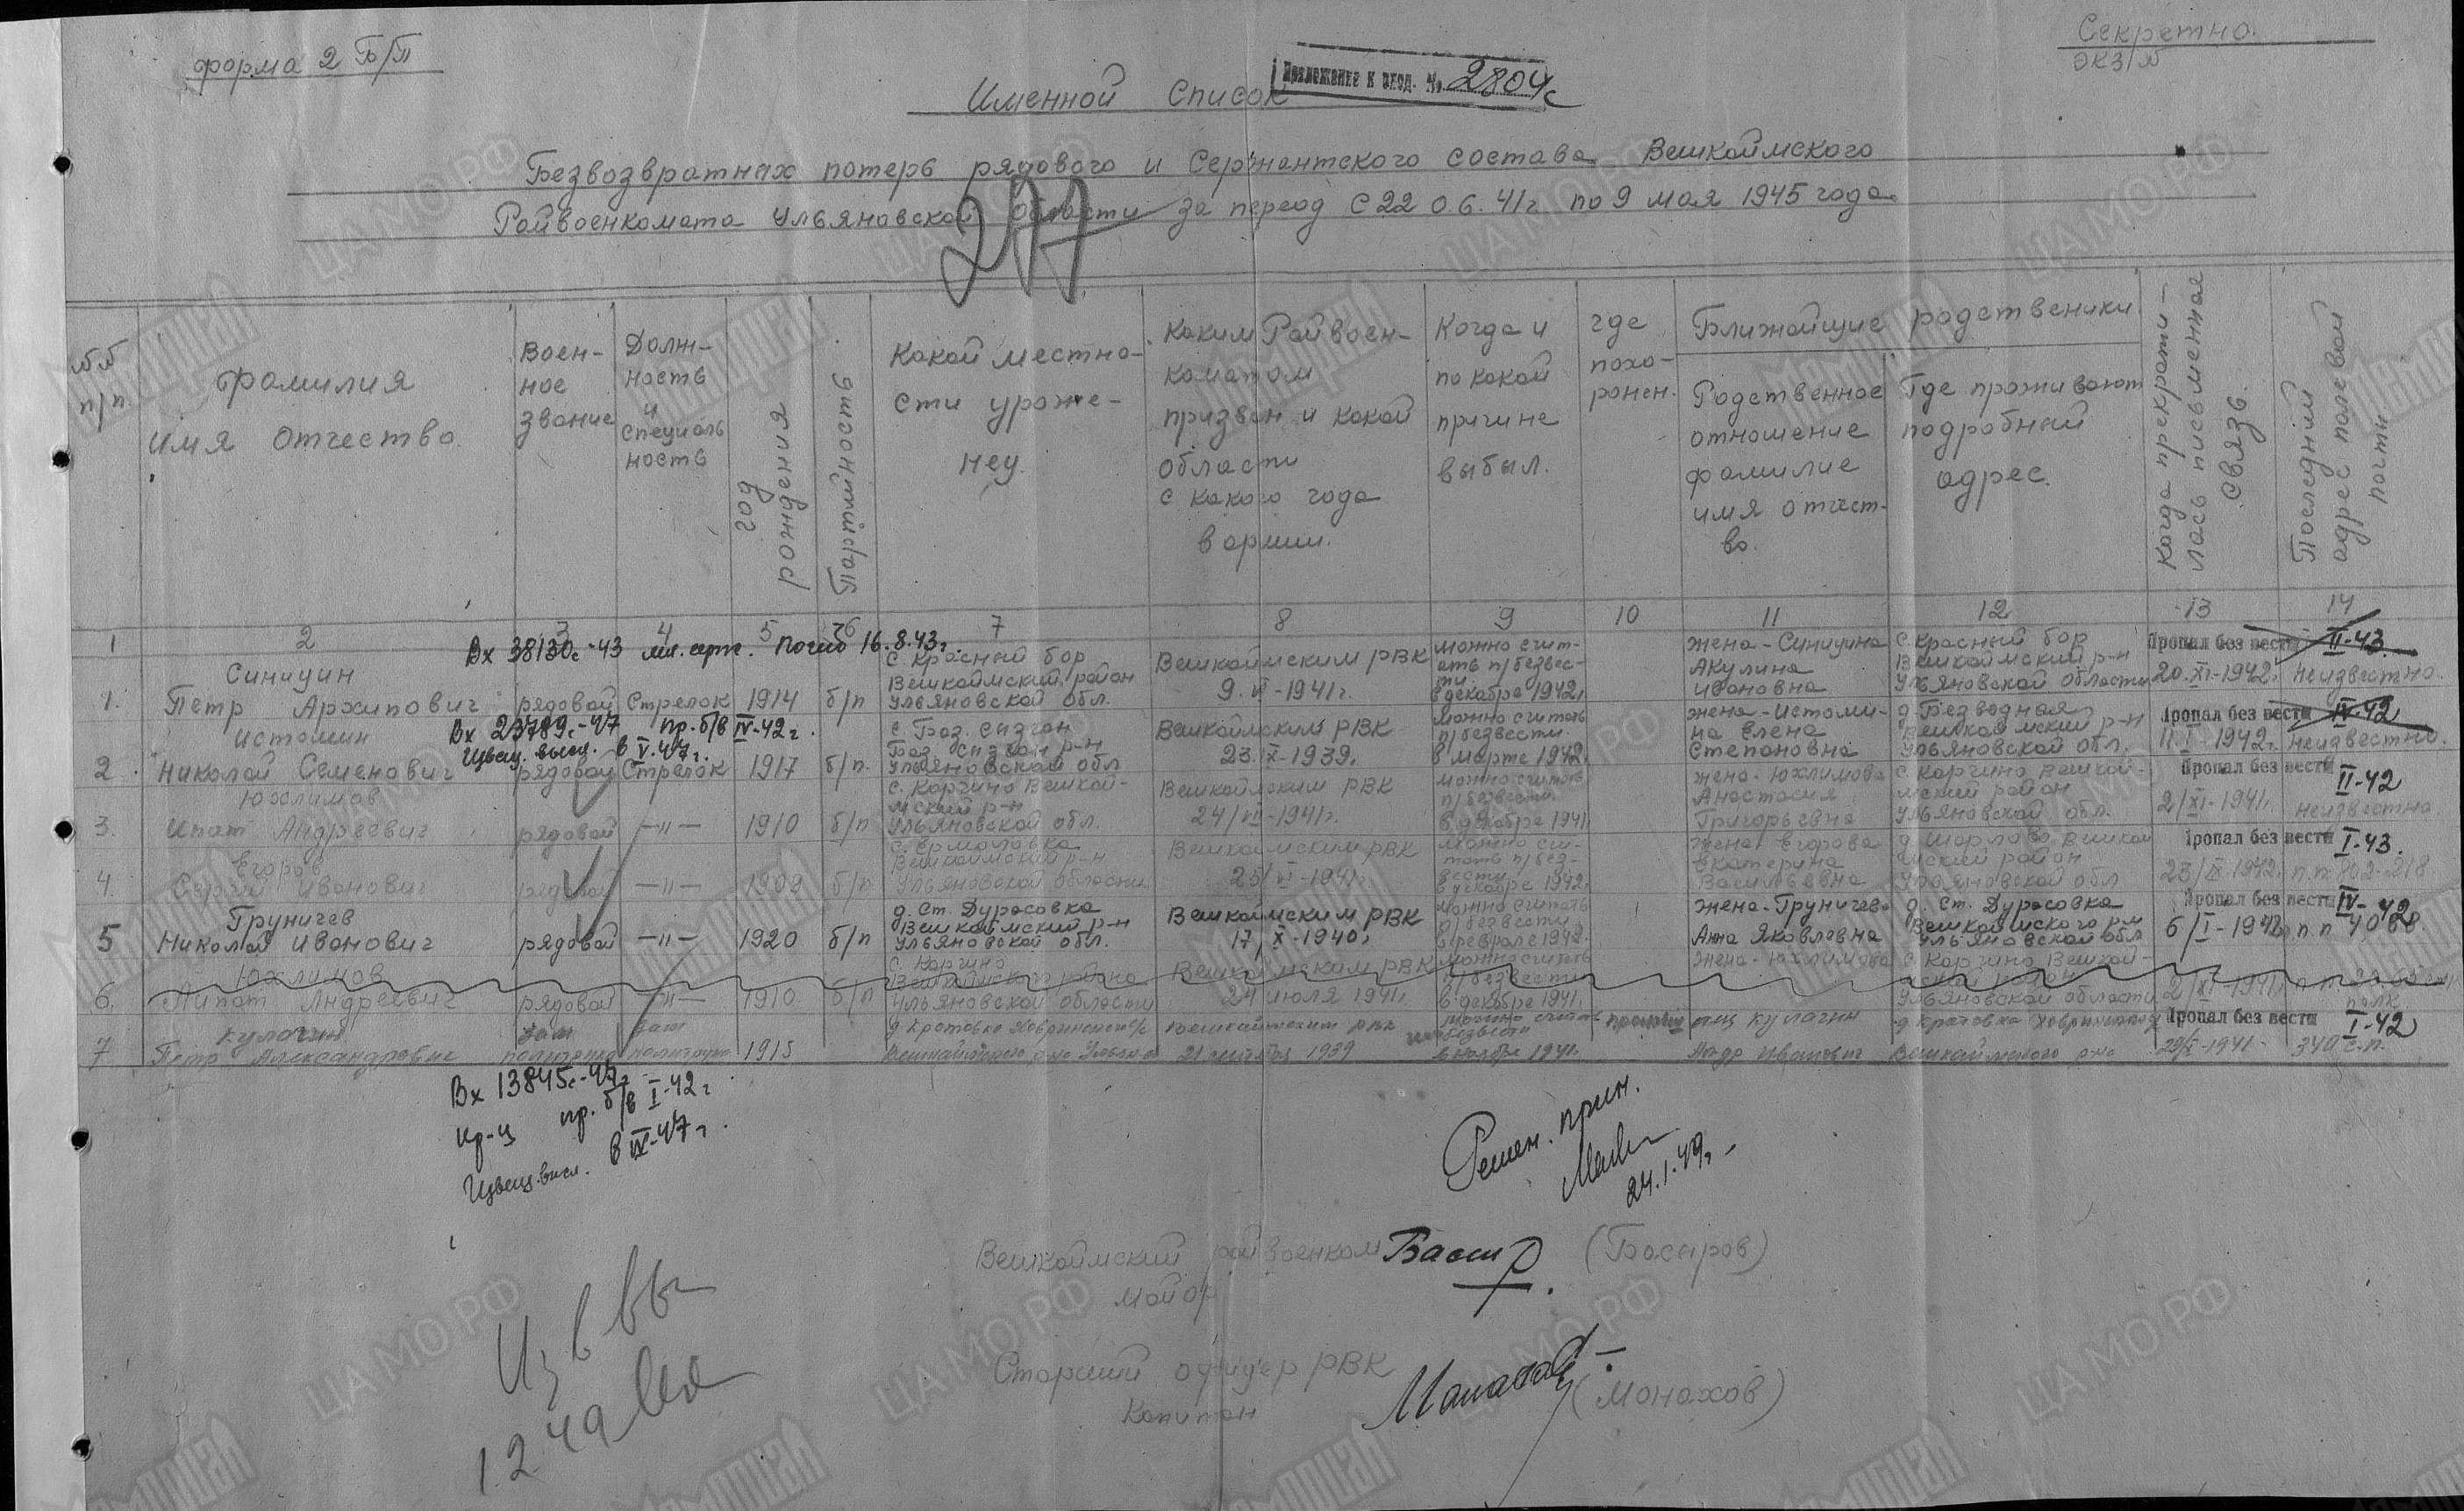 форма 2 Б/П
Секретно.
экз/№
Приложение к вход. № 2804с
Именной Список
Безвозвратных потерь рядового и Сержантского состава Вешкаймского
Райвоенкомата Ульяновской области за период с 22 0.6.41г по 9 мая 1945 года.
277
№№ п/п
Фамилия
имя отчество.
Воен-
ное
звание
Долж-
ность
и
специаль
ность
год
рождения
Партийность
Какой местно-
сти уроже-
нец.
Каким Райвоен-
коматом
призван и какой
области
с какого года
в армии.
Когда и
по какой
причине
выбыл.
где
похо-
ронен.
Ближайщие родственики
Родственное
отношение
фамилие
имя отчест-
во.
Где проживают
подробный
адрес.
Когда прекрати-
лась писвменная
связь.
Последний
адрес полевой
почты
1 2 3 4 5 6 7 8 9 10 11 12 13 14
Вх 38130с-43 мл. серж. Погиб 16.8.43г.
1. Синицин
Петр Архипович
рядовой
Стрелок
1914
б/п
с Красный бор
Вешкаймский район
Ульяновской обл.
Вешкаймским РВК
9. VI-1941г.
можно счит-
ать п/безвес-
ти
в декабре 1942г
жена-Синицина
Акулина
ивановна
с. Красный бор
Вешкаймский р-н
Ульяновской области
Пропал без вести II-43
20.XI-1942г. неизвестно.
Вх 23789с-47 пр.б/в IV-42г.
Извещ. высл. в V-47г.
2. истомин
Николай Семенович
рядовой
Стрелок
1917
б/п.
с Баз. сизган
Баз. сизган р-н
Ульяновской обл
Вешкаймским РВК
23.X-1939.
можно считать
п/безвести.
в марте 1942г
жена-Истоми-
на Елена
Степановна
д Безводная
Вешкаймский р-н
Ульяновской обл.
Пропал без вести IV-42
11.I-1942г. неизвестно.
3. Юхлимов
Ипат Андреевич
рядовой
-"-
1910
б/п
с. Каргино Вешкай-
мский р-н
Ульяновской обл.
Вешкаймским РВК
24/VII-1941г.
можно считать
п/безвести.
в декабре 1941
жена-Юхлимова
Анастасия
Григорьевна
с. Каргино Вешкай-
мский район
Ульяновской обл.
Пропал без вести II-42
2/XI-1941г. неизвестно
4. Егоров
Сергей Иванович
рядовой
-"-
1909
б/п
с. Ермоловка
Вешкаймский р-н
Ульяновской области
Вешкаймским РВК
25/VI-1941г.
можно счи-
тать п/без-
вести
в декабре 1942г.
жена Егорова
Екатерина
Васильевна
мский район
Ульяновской обл
Пропал без вести I-43.
5 Груничев
Николай Иванович
рядовой
-"-
1920
б/п
д. Ст. Дурасовка
Вешкаймский р-н
Ульяновской обл.
Вешкаймским РВК
17/X-1940г
можно считать
п/безвести
в феврале 1942г.
жена-Груничева
Анна Яковлевна
д. Ст. Дурасовка
Вешкаймского р-н
Ульяновской обл
Пропал без вести IV-42
6/I-1942г п.п.
6. Юхлимов
Липат Андреевич
рядовой
-"-
1910
б/п
с. Каргино
Вешкаймского района
Ульяновской области
Вешкаймским РВК
24 июля 1941г.
можно считать
п/безвести
в декабре 1941г.
жена-Юхлимова
с Каргино Вешкай-
мский район
Ульяновской области
2/XI-1941г.
полк
7 Кулагин
Петр Александрович
зам
политрука
1915
Вешкаймским РВК
1939
можно считать
безвести
в ноябре 1941г.
отец Кулагин
Иванович
Вешкаймского р-на
Пропал без вести I-42
1941 340 с.п.
Вх 13845с-47г
кр-ц пр.б/в I-42г
Извещ.высл. в IX-47г.
Решен. прин.
24.1.49г.
Вешкаймский райвоенком (Басыров)
майор
Старший офицер РВК
Капитан (Монахов)
Изв вы
12 49
Мемориал
ЦА МО РФ